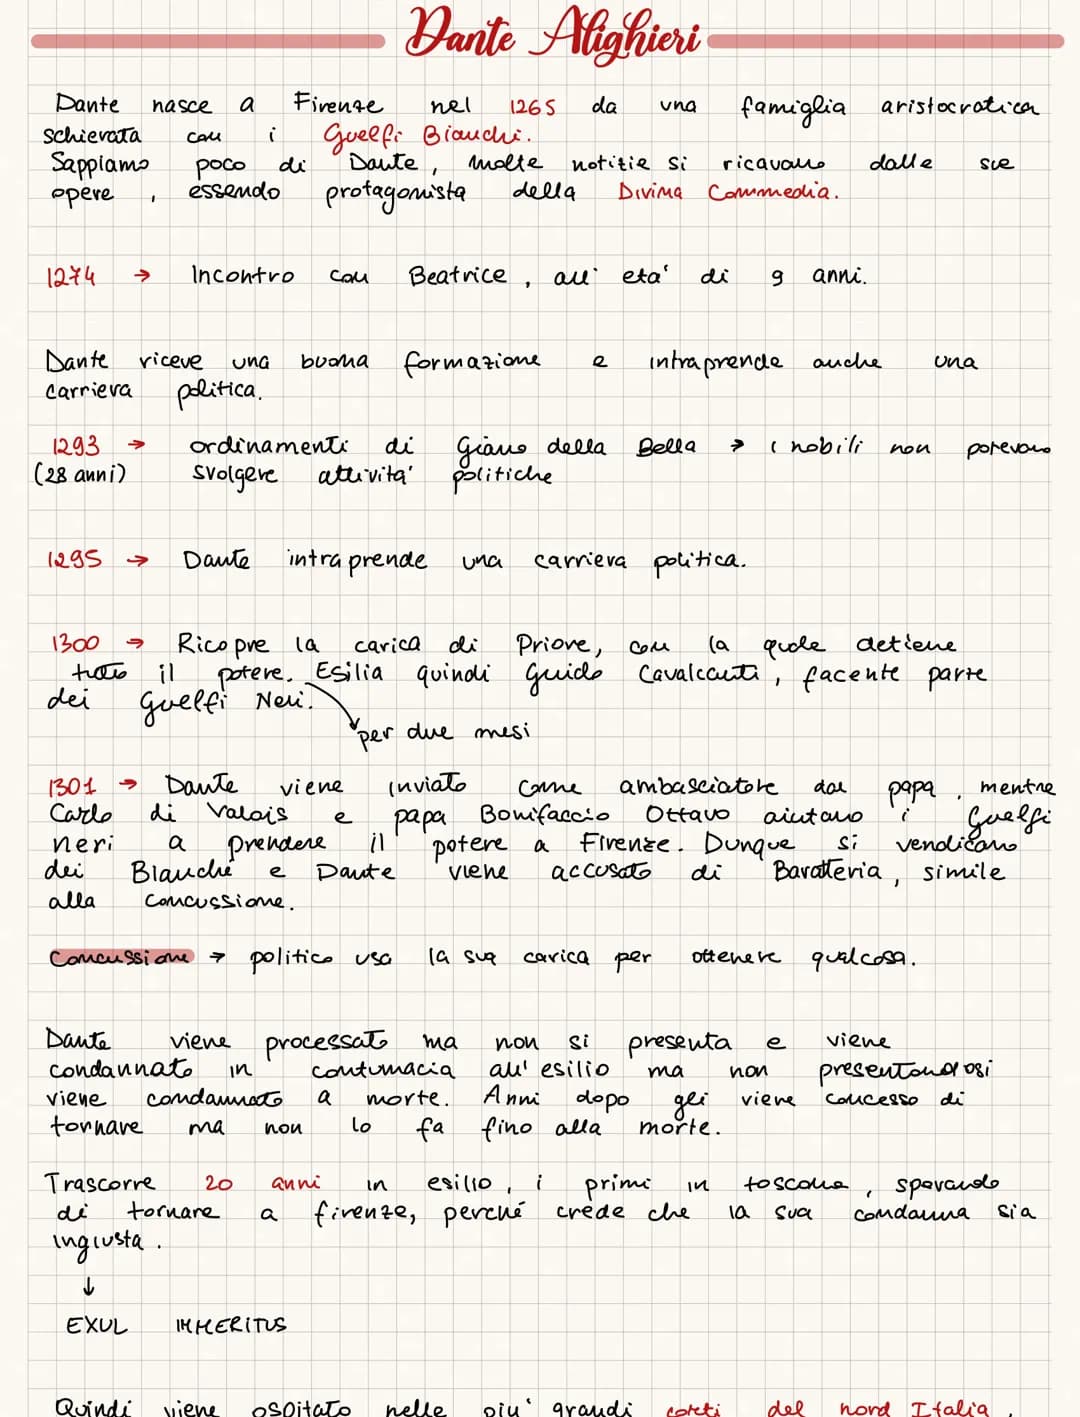 Dante Alighieri
Dante nasce a Firenze nel 1265 da una famiglia aristocratica
schierata con i Guelfi Bianchi.
Sappiamo poco di Dante, molte notizie si ricavano dalle sue
opere, essendo protagonista della Divina Commedia.
1274 → Incontro con Beatrice, all' eta' di 9 anni.
Dante riceve una buona formazione e intraprende anche una
carriera politica.
1293 → ordinamenti di Giano della Bella → i nobili non potevano
(28 anni) svolgere attivita' politiche
1295 → Dante intraprende una carriera politica.
1300 → Ricopre la carica di Priore, con la quale detiene
tutto il potere. Esilia quindi Guido Cavalcanti, facente parte
dei Guelfi Neri.
per due mesi
1301 → Dante viene inviato come ambasciatore dal papa, mentre
Carlo di Valois e papa Bonifaccio Ottavo aiutano i Guelfi
neri a prendere il potere a Firenze. Dunque si vendicano
dei Bianchi e Dante viene accusato di Baratteria, simile
alla concussione.
Concussione → politico usa la sua carica per ottenere qualcosa.
Dante viene processato ma non si presenta e viene
condannato in contumacia all' esilio ma non presentandosi
viene condannato a morte. Anni dopo gli viene concesso di
tornare ma non lo fa fino alla morte.
Trascorre 20 anni in esilio, i primi in toscana, sperando
di tornare a firenze, perché crede che la sua condanna sia
ingiusta.
↓
EXUL IMMERITUS
Quindi viene ospitato nelle piu' grandi corti del nord Italia,